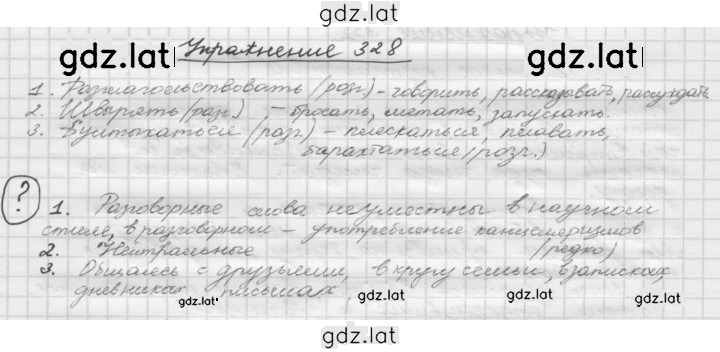 gdz.latъ
gdz.lat gdz.lat
Упражнение 328
1. Разглагольствовать (разг.) – говорить, рассказывать, рассуждать.
2. Швырять (раз.) – бросать, метать, запускать.
3. Бултыхаться (разг.) – плескаться, плавать,
барахтаться (розг.)
? 1. Разговорные слова неуместны в научном
стиле, в разговорном – употребление канцеляризмов
2. Нейтральные (редко)
3. Общаясь с друзьями, в кругу семьи, в записках,
дневниках письмах
gdz.lat gdz.lat
gdz.lat